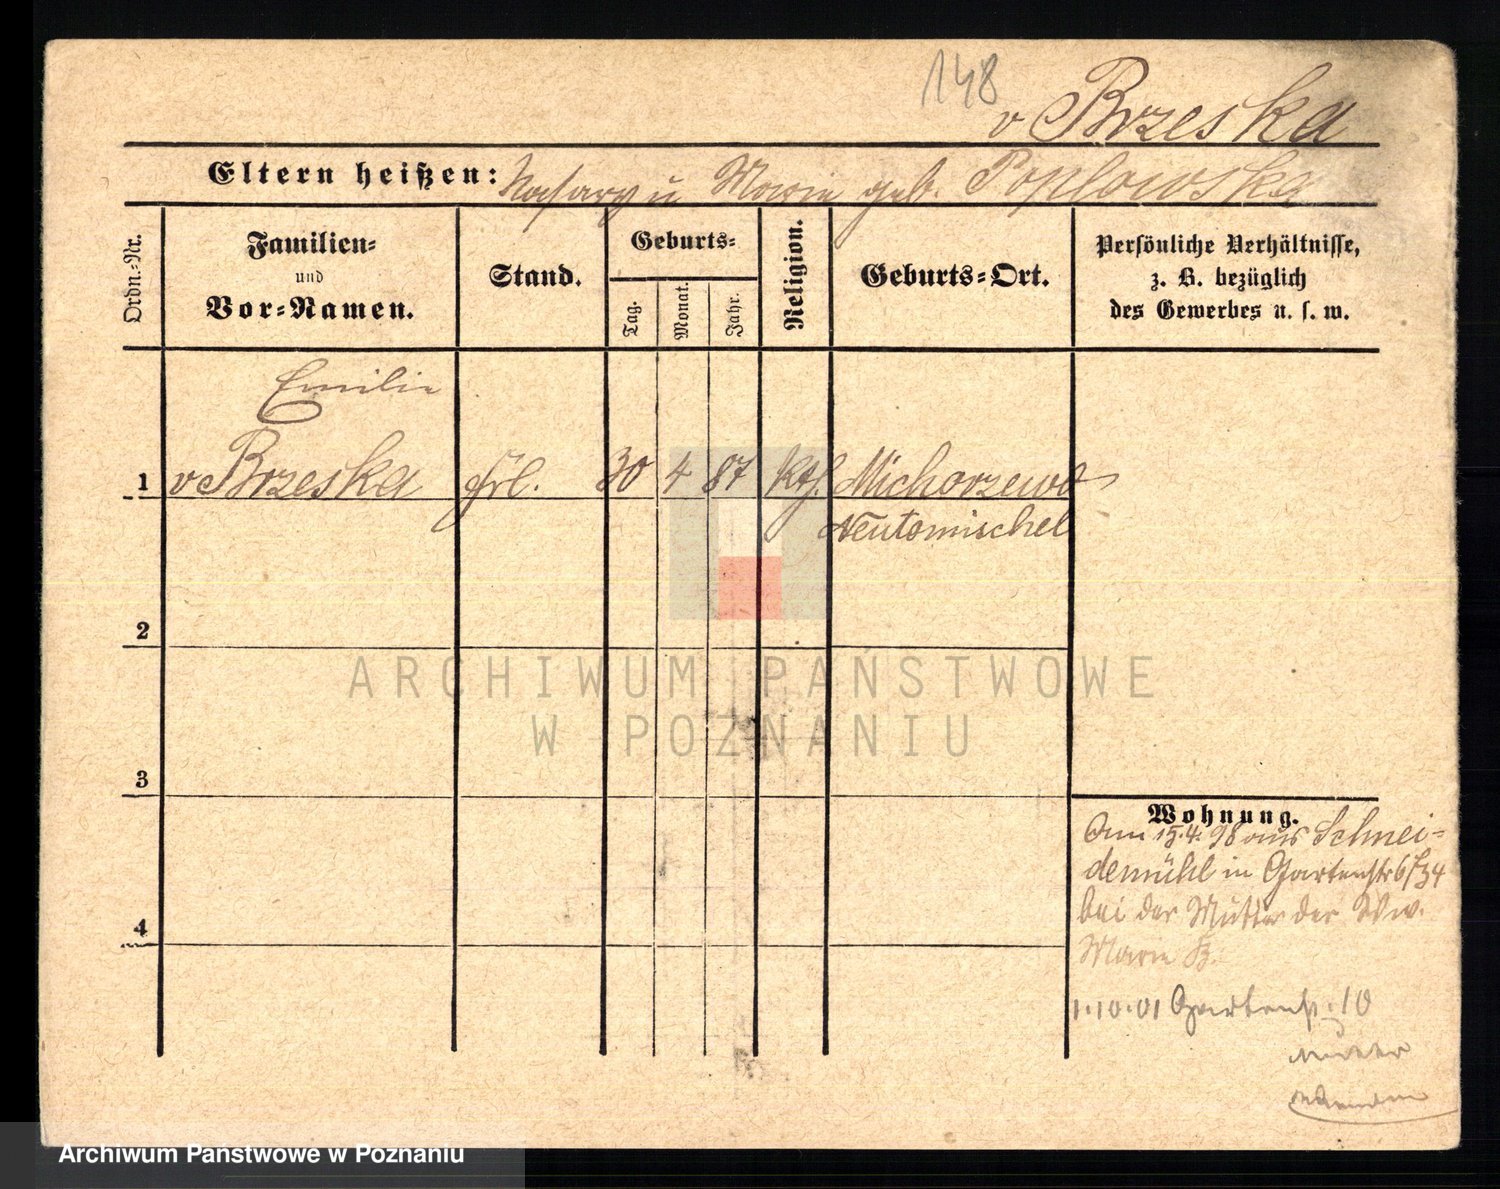 148
v Brzeska
Eltern heißen: u Marie geb. Poplowska
Ordn.-Nr.
Familien-
und
Vor-Namen.
Stand.
Geburts-
Tag.
Monat.
Jahr.
Religion.
Geburts-Ort.
Persönliche Verhältnisse,
z. B. bezüglich
des Gewerbes u. s. w.
Emilie
1 v Brzeska Frl. 30 4 87 kth. Michorzewo
Neutomischel
2
3
4
Wohnung.
Am 15.4.98 aus Schnei-
demühl in Gartenstr
bei der Mutter der Ww.
Marie B.
1.10.01 Gartenstr. 10
Mutter
ARCHIWUM PAŃSTWOWE
W POZNANIU
Archiwum Państwowe w Poznaniu